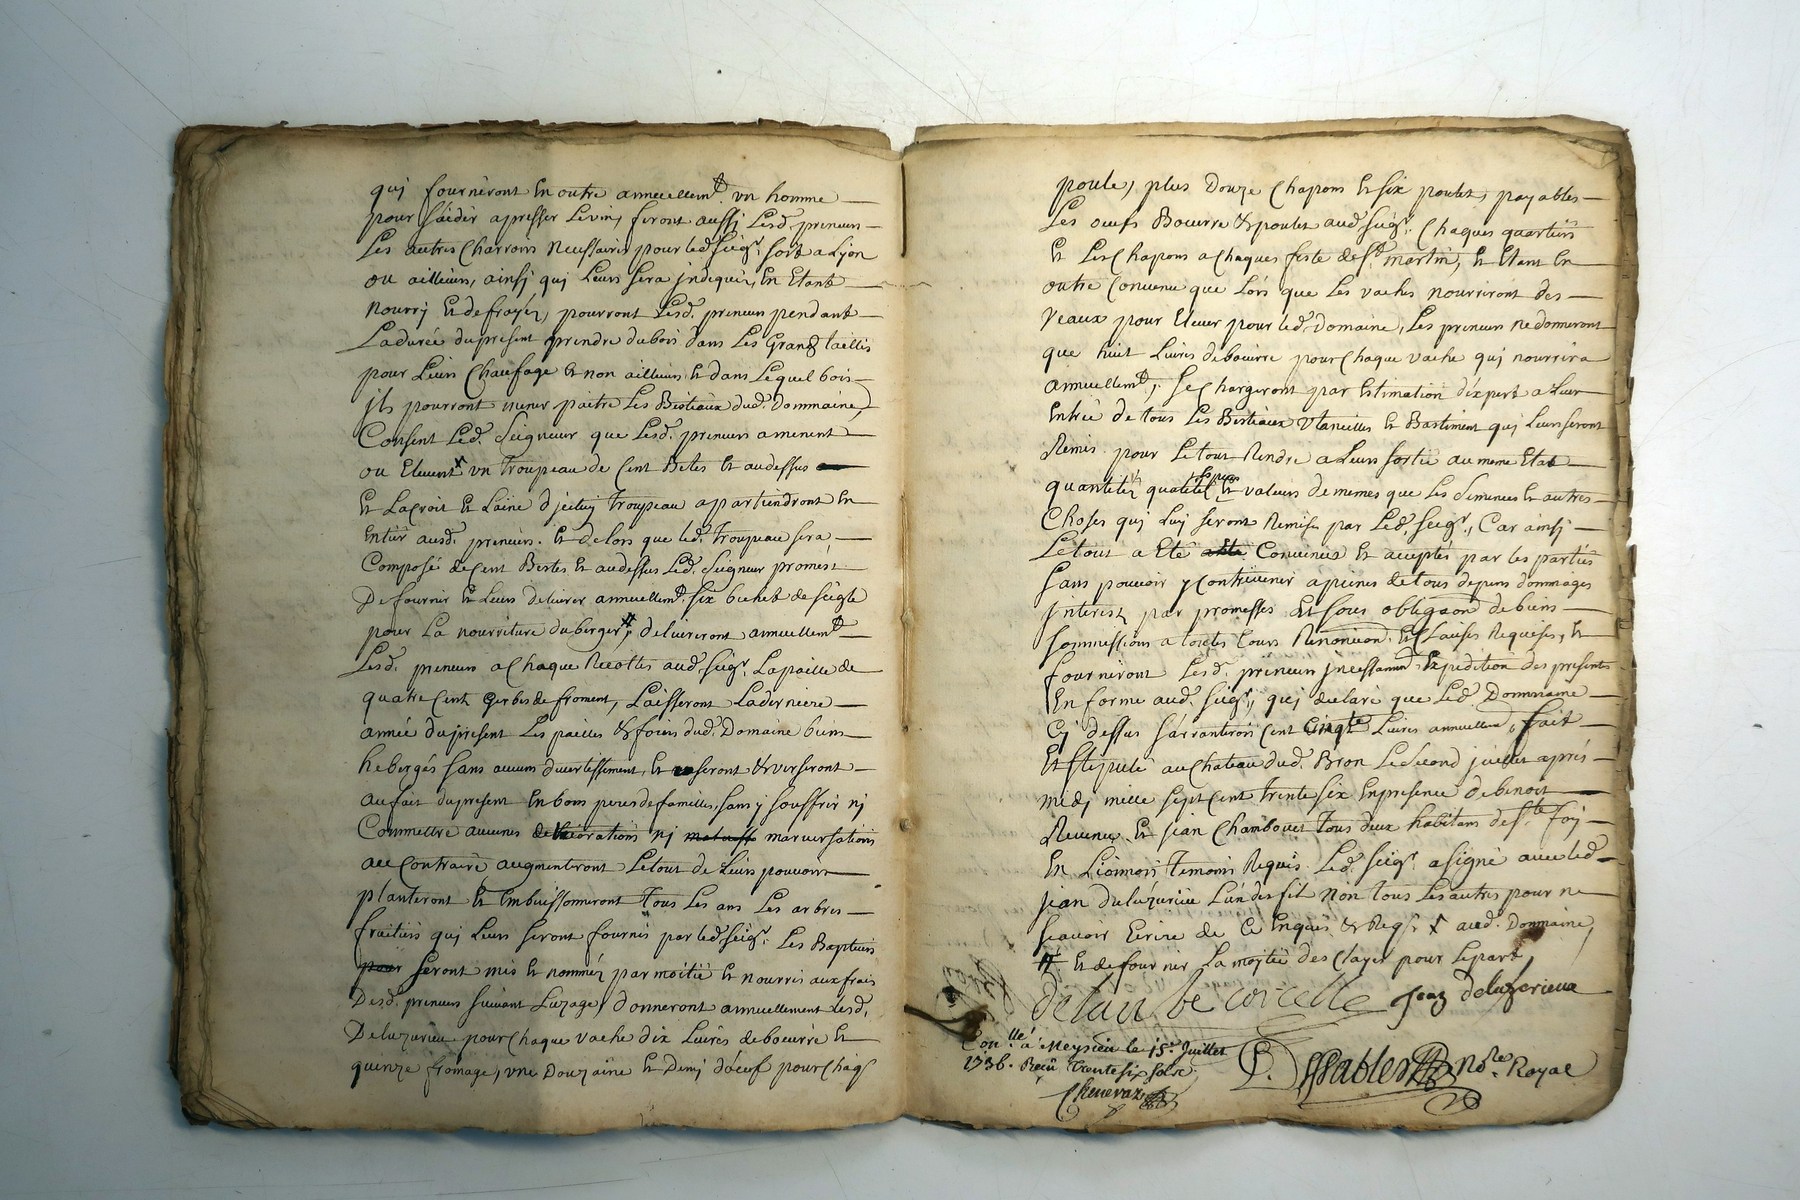 qui fourniront En outre annuellemt. vn homme
pour s'aider a presser Levin, feront aussi Lesd. preneurs
Les autres Charrois necessaires pour led. seigr. soit a Lyon
ou ailleurs, ainsi qui Leurs sera jndiqué, En Etant
nourry Et defrayés, pourront Lesd. preneurs pendant
La durée du present prendre du bois dans Les Grands taillis
pour Leurs Chaufage Et non ailleurs Et dans Lequel bois
jls pourront mener paitre Les Bestiaux dud. Dommaine,
Consent Led. Seigneur que Lesd. preneurs amenent
ou Elevent vn troupeau de Cent Bêtes Et audessus
Et La Croit Et Laine d'jceluy troupeau appartiendront En
Entier ausd. preneurs. Et de lors que led. Troupeau sera
Composé de Cent Bestes Et audessus Led. Seigneur promest
De fournir Et Leurs delivrer annuellemt. six bichets de seigle
pour La nourriture du berger #, delivreront annuellemt.
Lesd. preneurs a Chaque Recoltes aud. seigr. La paille de
quatre Cent gerbes de froment, Laisseront La derniere
année du present Les pailles & foins dud. Domaine biens
hebergés sans aucun divertissement, Et seront & verseront
au fait du present En bons peres de familles, sans y souffrir nj
Commettre aucunes deteriorations nj marversations
au Contraire augmenteront Le tout de Leurs pouvoirs
planteront Et Embuissonneront tous Les ans Les arbres
fruitiers qui Leurs seront fournis par led. seigr. Les Baptiers
pour seront mis Et nommés par moitié Et nourris aux frais
Desd. preneurs suivant L'uzage, donneront annuellement Lesd.
Deluzurieu pour Chaque vache dix Livres de boeurre Et
quinze fromage, vne Douzaine Et Demj d'oeuf pour Chaq.
poule, plus Douze Chapons Et six poulets, payables
Les oeufs Boeurre & poulets aud. seigr. Chaques quartiers
Et Les Chapons a Chaques feste de St. martin, Et Etant En
outre Convenu que Lors que Les vaches nourriront des
Veaux pour Elever pour led. Domaine, Les preneurs ne donneront
que huit Livres de boeurre pour Chaque vache qui nourrira
annuellemt., se Chargeront par Estimation d'expert a Leur
Entrée de tous Les Bestiaux Vtancilles Et Bastiment qui Leurs seront
Remis pour Le tout Rendre a Leurs sortie au meme Etat
quantités qualités Especes Et valeurs de memes que Les Semences Et autres
Choses qui Luj seront Remises par Led. seigr., Car ainsi
Le tout a Eté Convenus Et acceptés par les parties
sans pouvoir y Contrevenir a peines de tous depens dommages
jnterests par promesses Et sous obligaon. de biens
sommissions a toutes Cours Renonciaon. Et Clauses Requises, Et
fourniront Lesd. preneurs jncessammt. Expedition des presentes
En forme aud. seigr., qui declare que Led. Dommaine
Cj dessus s'arranteroit Cent Cinqte Livres annuellemt., fait
Et stipulé au Chateau dud. Bron Le Second juillet aprés
midj mille sept Cent trente six En presence de benoit
Et jean Chambouet tous deux habitans de Ste. Foj
En Lionnois temoins Requis Led. seigr. a signé avec led.
jean deluzurieu L'un des fils non tous Les autres pour ne
sçavoir Ecrire de Ce Enquis & Reqs. X aud. Domaine,
# Et de fournir La mojtié des Clayes pour Le parc,
de Corcelle Jean deluzerieua
Con.llé a Meysieu le 15e. Juillet
1736. Receu Trente six sols
Chenevaz
Nore. Royal